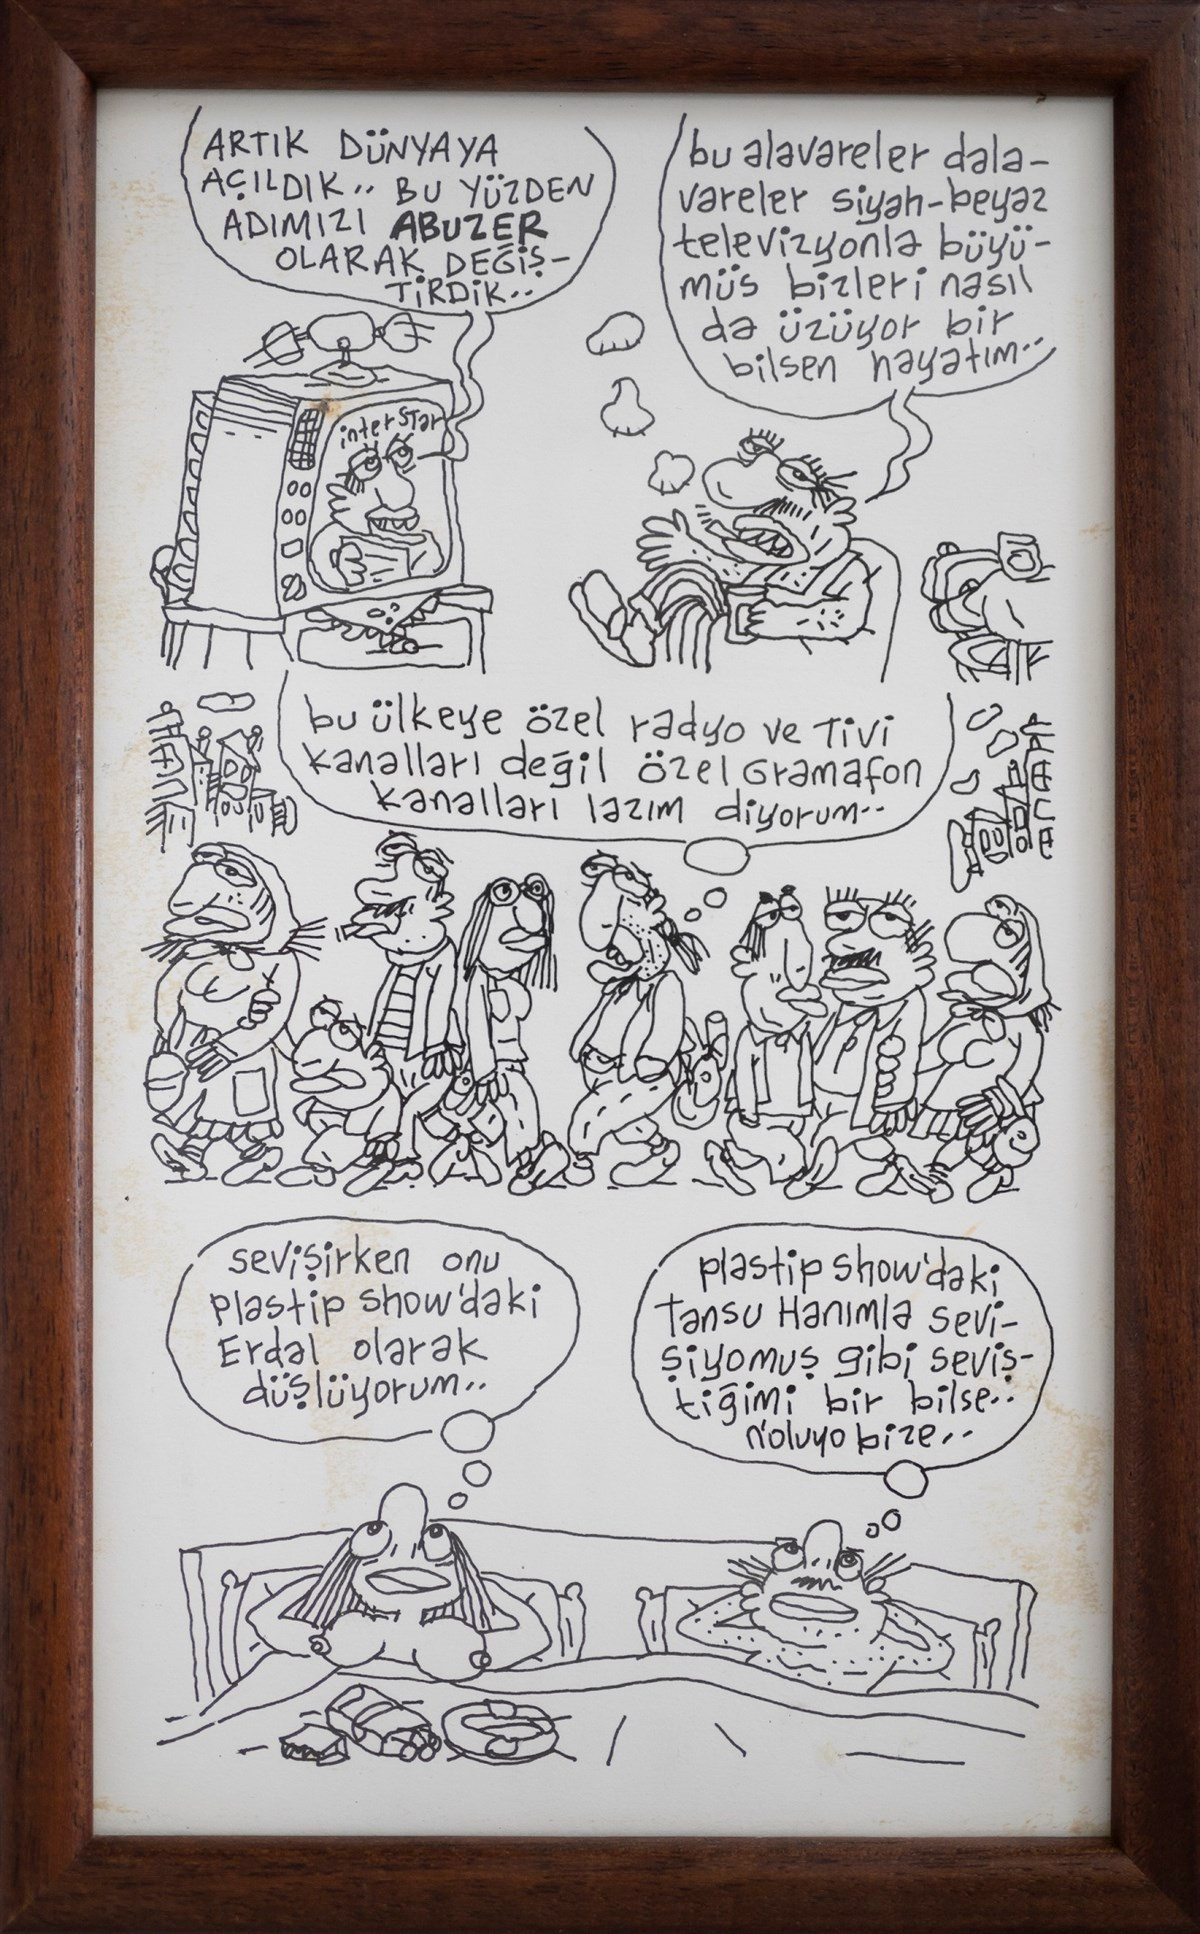 ARTIK DÜNYAYA
AÇILDIK.. BU YÜZDEN
ADIMIZI ABUZER
OLARAK DEĞİŞ-
TİRDİK..
inter STar
bu alavareler dala-
vareler siyah-beyaz
televizyonla büyü-
müş bizleri nasıl
da üzüyor bir
bilsen hayatım..
bu ülkeye özel radyo ve TiVi
kanalları değil özel Gramafon
kanalları lazım diyorum..
sevişirken onu
plastip show'daki
Erdal olarak
düşlüyorum..
plastip show'daki
Tansu Hanımla sevi-
şiyomuş gibi seviş-
tiğimi bir bilse..
n'oluyo bize..